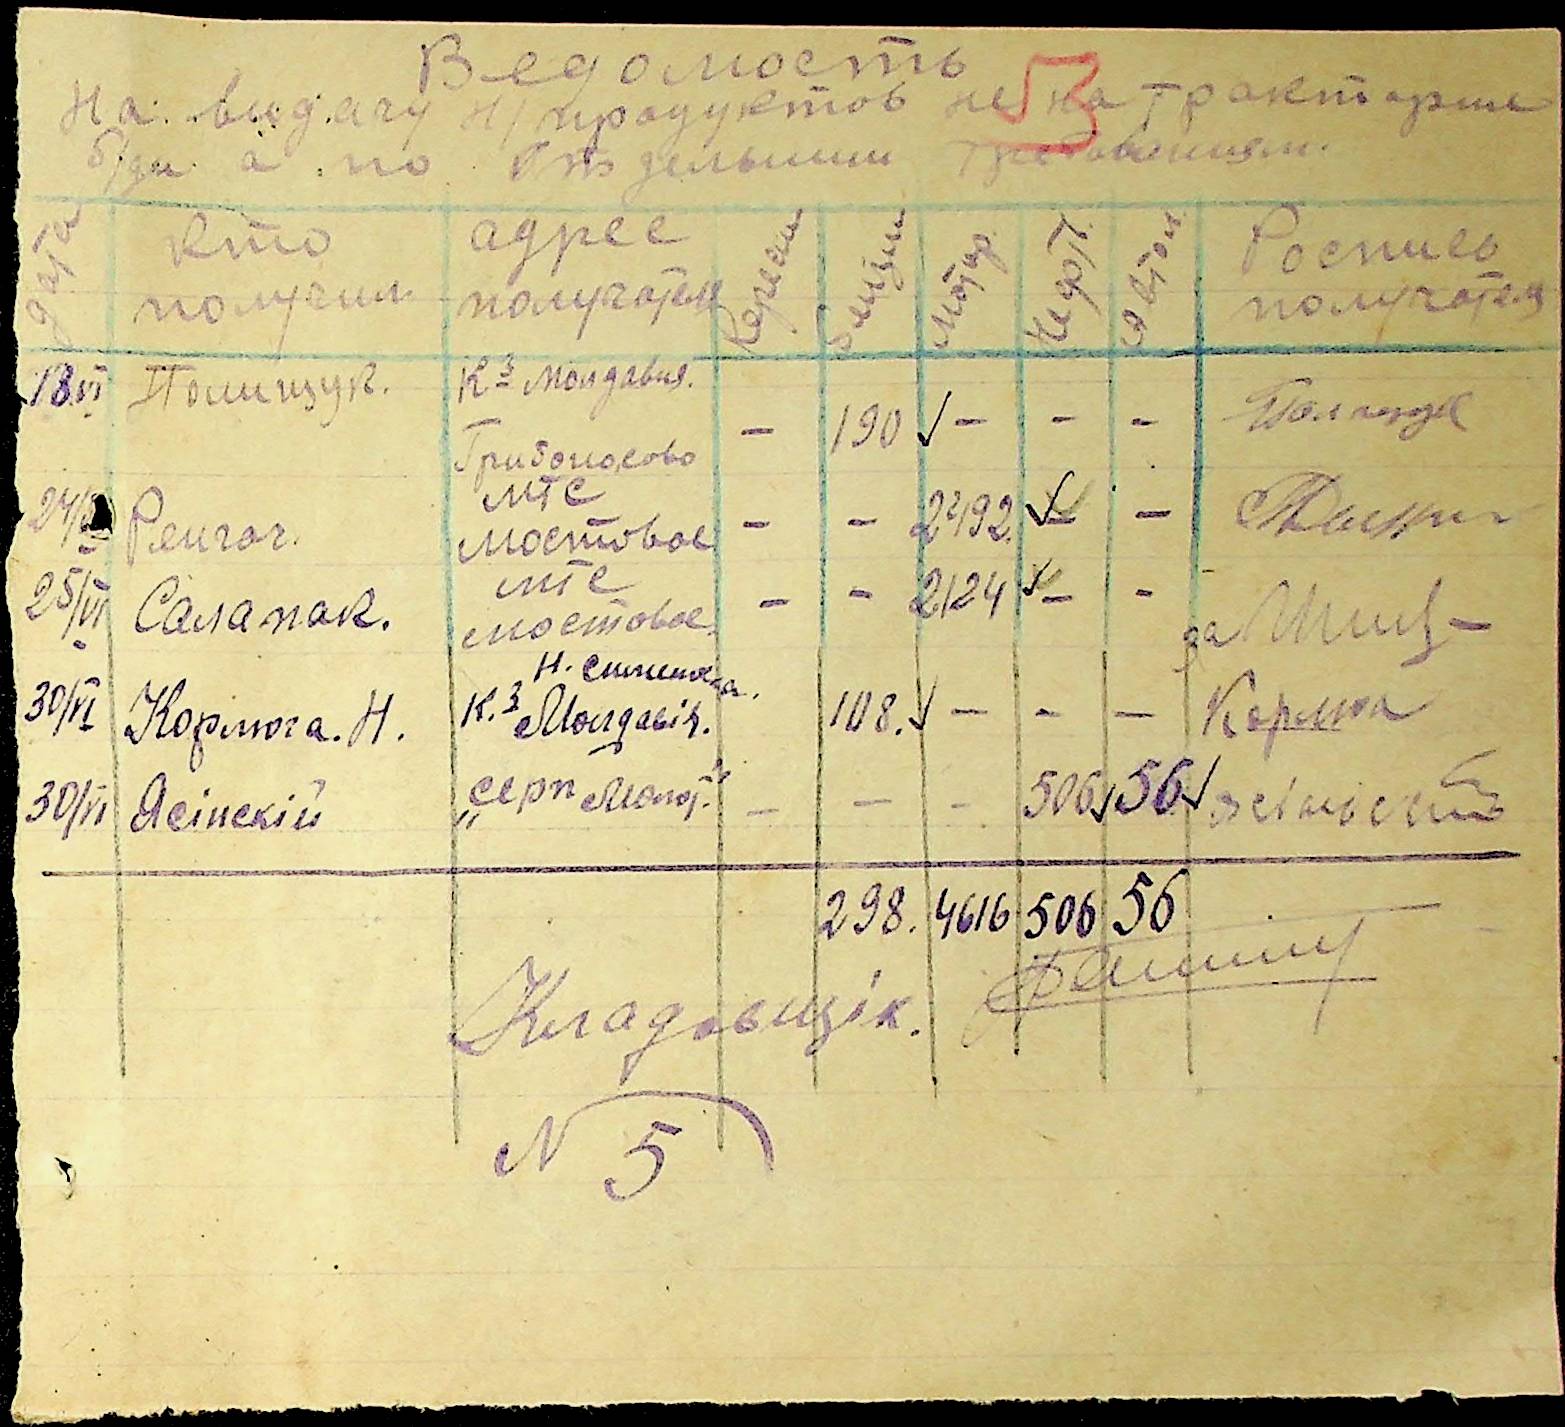 Ведомость
На выдачу Н/продуктов не на тракторные
б/ди а по Отдельным требованиям.
дата кто получил адрес получателя Керосин Лигроин Мотор. Нефт. Автол Роспись получателя
18.VI Полищук. К-з Молдавия. Грибоносово — 190 √ — - - Полищук
24/ МТС мостовое — — 2492. √ — —
25/VI Салапак. МТС мостовое. — - 2124 √ — - за
30/VI Кормюга. Н. К.З Молдавія. 108. √ — - — Кормюга
30/VI Ясінскій „Серп Молот." — — - 506 √ 56 √
298. 4616 506 56
Кладовщік.
N 5